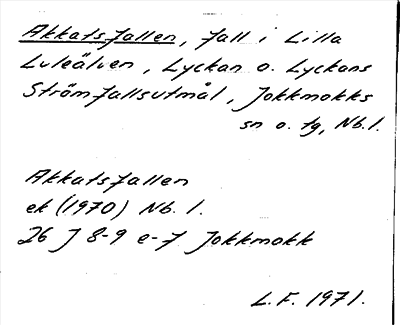 Akkatsfallen, fall i Lilla
Luleälven, Lyckan o. Lyckans
Strömfallsutmål, Jokkmokks
sn o. tg, Nb.l.
Akkatsfallen
ek (1970) Nb. l.
26 J 8-9 e-f Jokkmokk
L.F. 1971.